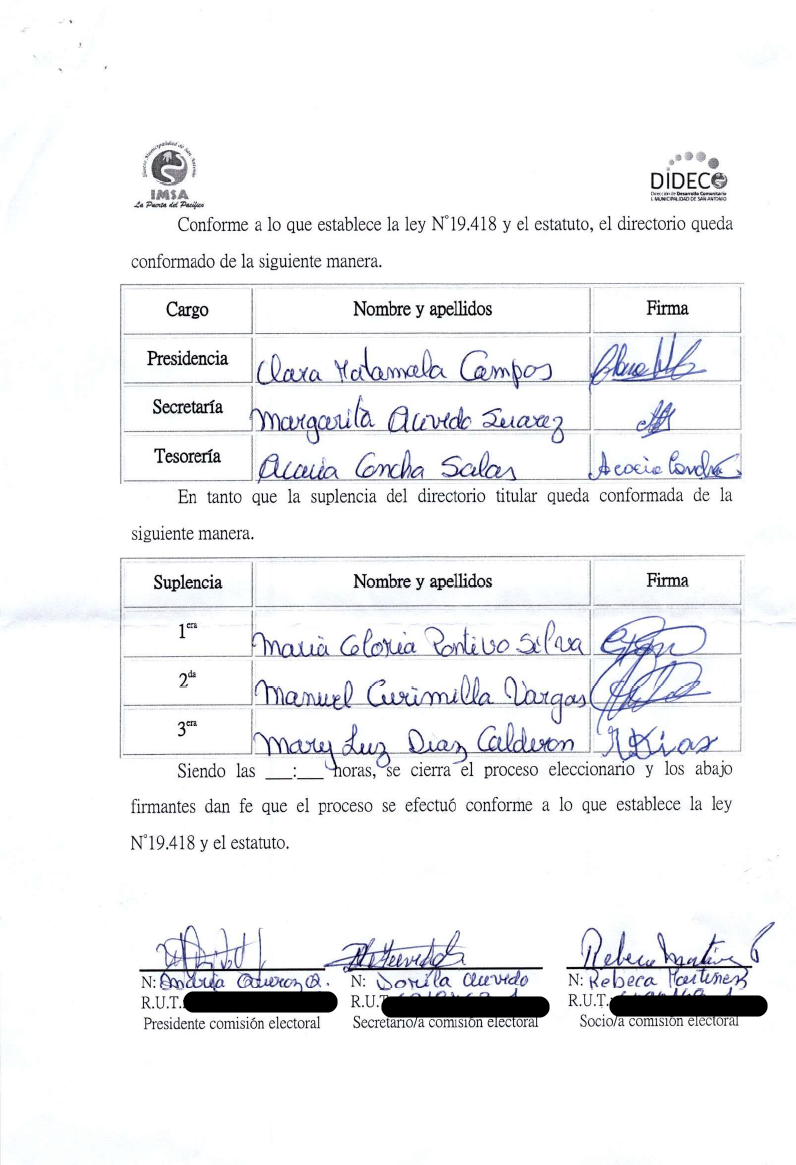 Ilustre Municipalidad de San Antonio
IMSA
La Puerta del Pacífico
DIDECO
Dirección de Desarrollo Comunitario
I. MUNICIPALIDAD DE SAN ANTONIO
Conforme a lo que establece la ley N°19.418 y el estatuto, el directorio queda
conformado de la siguiente manera.
Cargo Nombre y apellidos Firma
Presidencia Clara Matamala Campos
Secretaría Margarita Acevedo Suarez
Tesorería Acacia Concha Salas Acacia Concha S.
En tanto que la suplencia del directorio titular queda conformada de la
siguiente manera.
Suplencia Nombre y apellidos Firma
1era Maria Gloria Pontivo Silva
2da Manuel Curimilla Vargas
3era Mary Luz Diaz Calderon
Siendo las ___:___ horas, se cierra el proceso eleccionario y los abajo
firmantes dan fe que el proceso se efectuó conforme a lo que establece la ley
N°19.418 y el estatuto.
Rebeca Martinez
N: Andrea N: Dorila Acevedo N: Rebeca Martinez
R.U.T. R.U.T. R.U.T.
Presidente comisión electoral Secretario/a comisión electoral Socio/a comisión electoral